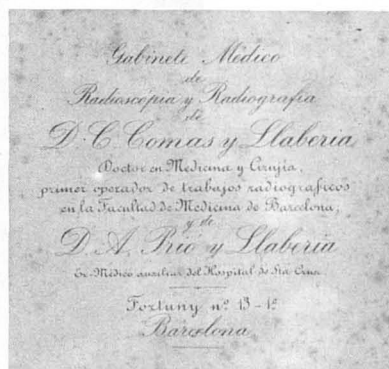 Gabinete Médico
de
Radioscopia y Radiografía
de
D. C. Comas y Llaberia
Doctor en Medicina y Cirujía,
primer operador de trabajos radiograficos
en la Facultad de Medicina de Barcelona,
y de
D. A. Prió y Llaberia
Ex-Médico auxiliar del Hospital de Sta Cruz.
Fortuny nº 13-1º
Barcelona